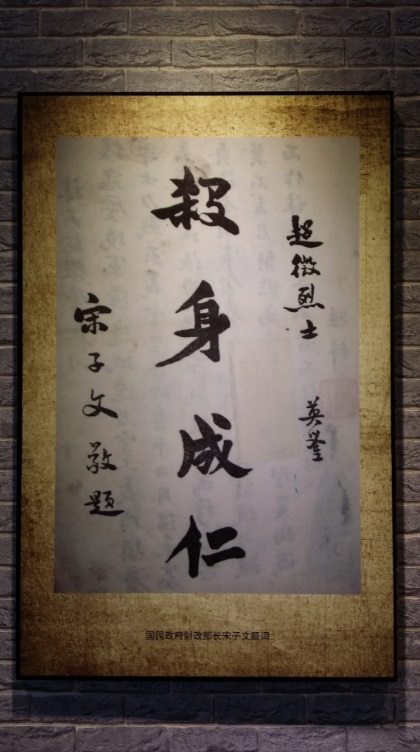 超微烈士 英鉴
殺身成仁
宋子文敬題
国民政府财政部长宋子文题词